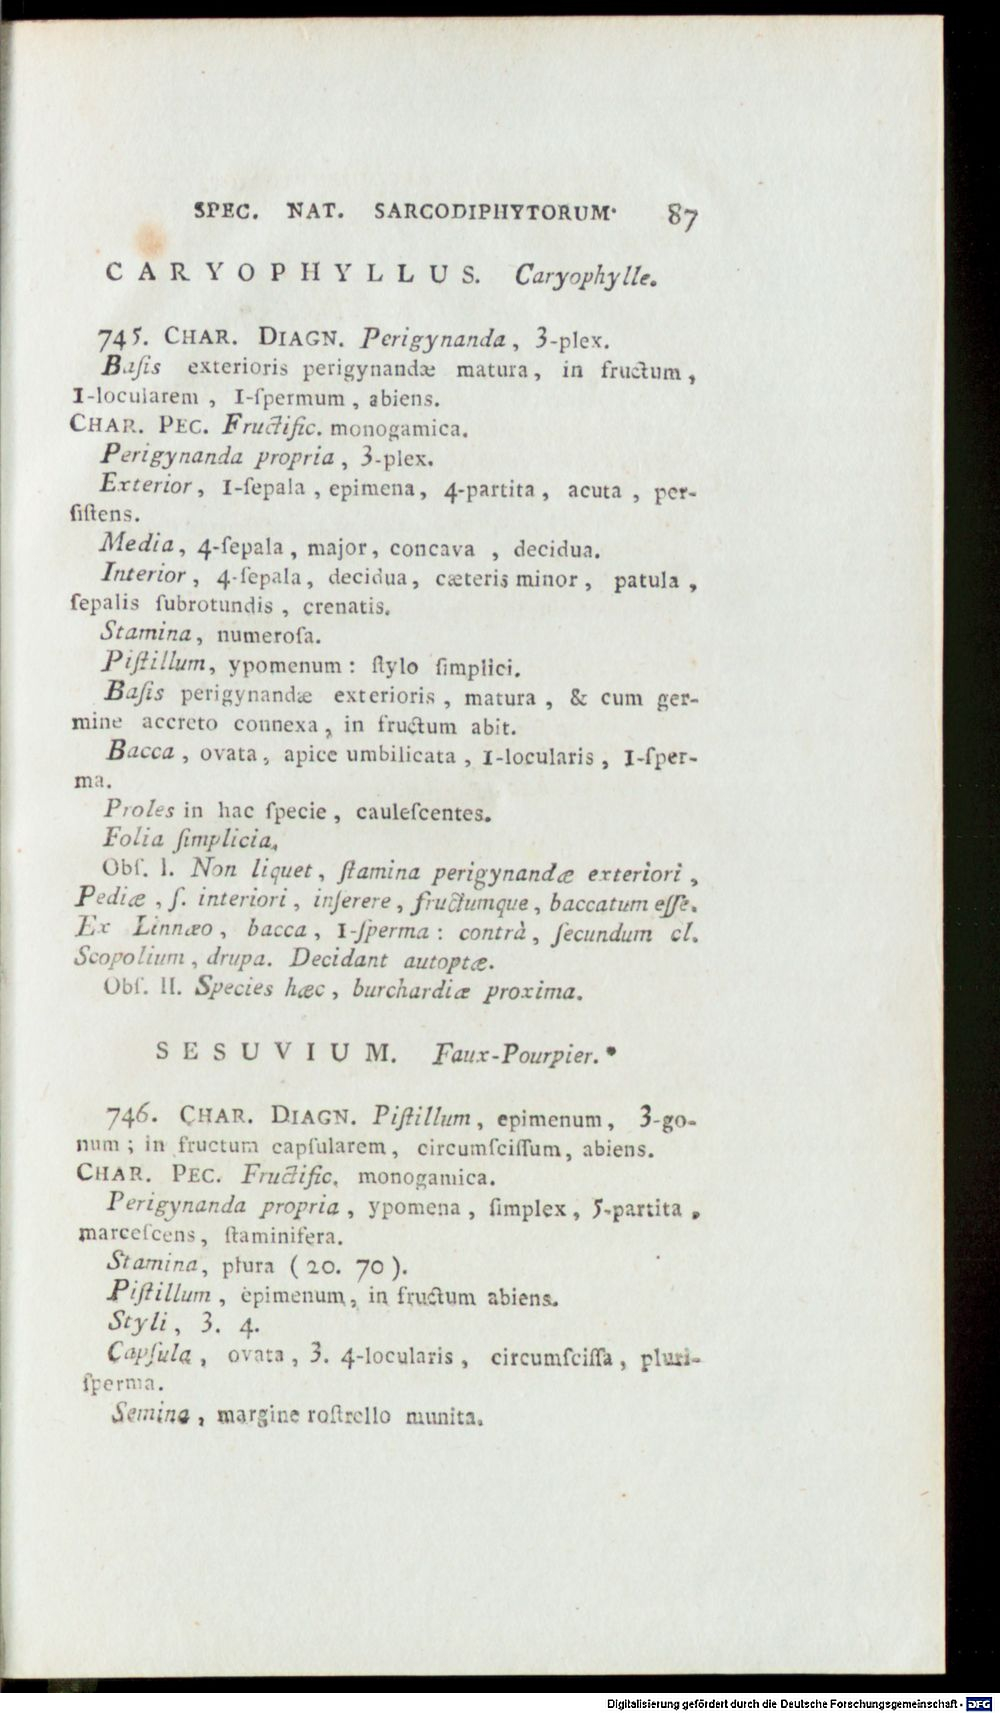 SPEC. NAT. SARCODIPHYTORUM· 87
CARYOPHYLLUS. Caryophylle.
745. CHAR. DIAGN. Perigynanda, 3-plex.
Baſis exterioris perigynandæ matura, in fructum,
1-locularem, 1-ſpermum, abiens.
CHAR. PEC. Fructific. monogamica.
Perigynanda propria, 3-plex.
Exterior, 1-ſepala, epimena, 4-partita, acuta, per-
ſiſtens.
Media, 4-ſepala, major, concava, decidua.
Interior, 4-ſepala, decidua, cæteris minor, patula,
ſepalis ſubrotundis, crenatis.
Stamina, numeroſa.
Piſtillum, ypomenum: ſtylo ſimplici.
Baſis perigynandæ exterioris, matura, & cum ger-
mine accreto connexa, in fructum abit.
Bacca, ovata, apice umbilicata, 1-locularis, 1-ſper-
ma.
Proles in hac ſpecie, cauleſcentes.
Folia ſimplicia.
Obſ. I. Non liquet, ſtamina perigynandæ exteriori,
Pediæ, ſ. interiori, inſerere, fructumque, baccatum eſſe.
Ex Linnæo, bacca, 1-ſperma: contrà, ſecundum cl.
Scopolium, drupa. Decidant autoptæ.
Obſ. II. Species hæc, burchardiæ proxima.
SESUVIUM. Faux-Pourpier.*
746. CHAR. DIAGN. Piſtillum, epimenum, 3-go-
num; in fructum capſularem, circumſciſſum, abiens.
CHAR. PEC. Fructific. monogamica.
Perigynanda propria, ypomena, ſimplex, 5-partita,
marceſcens, ſtaminifera.
Stamina, plura (20. 70).
Piſtillum, epimenum, in fructum abiens.
Styli, 3. 4.
Capſula, ovata, 3. 4-locularis, circumſciſſa, pluri-
ſperma.
Semina, margine roſtrello munita.
Digitalisierung gefördert durch die Deutsche Forschungsgemeinschaft - DFG